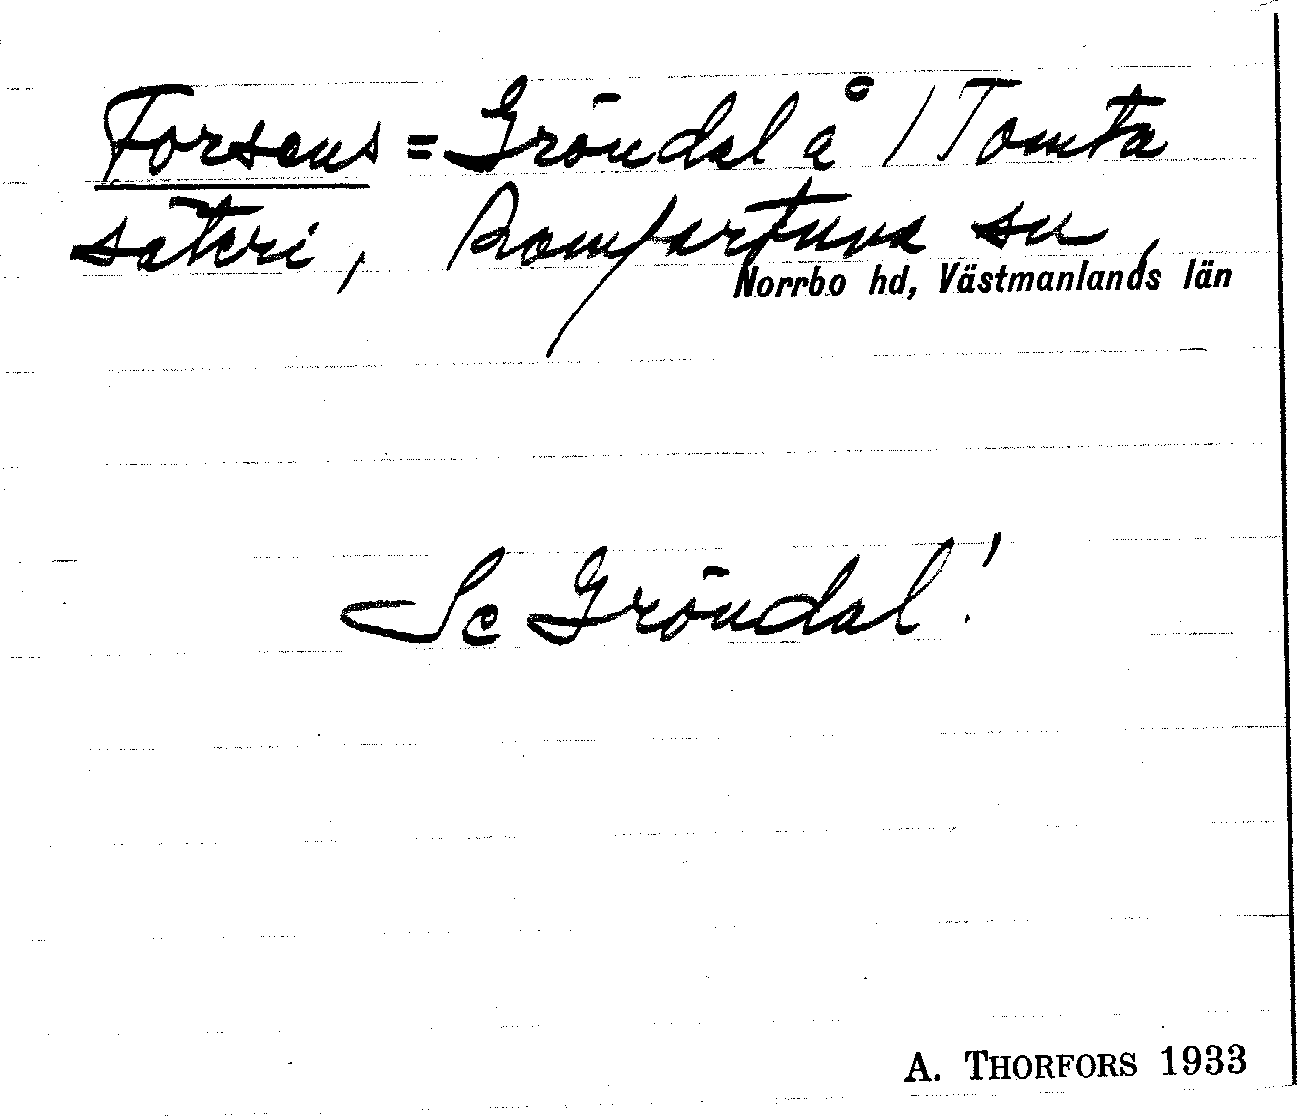 Forsens = Gröndal å 1 Tomta
säteri, Romfartuna sn,
Norrbo hd, Västmanlands län
Se Gröndal!
A. THORFORS 1933